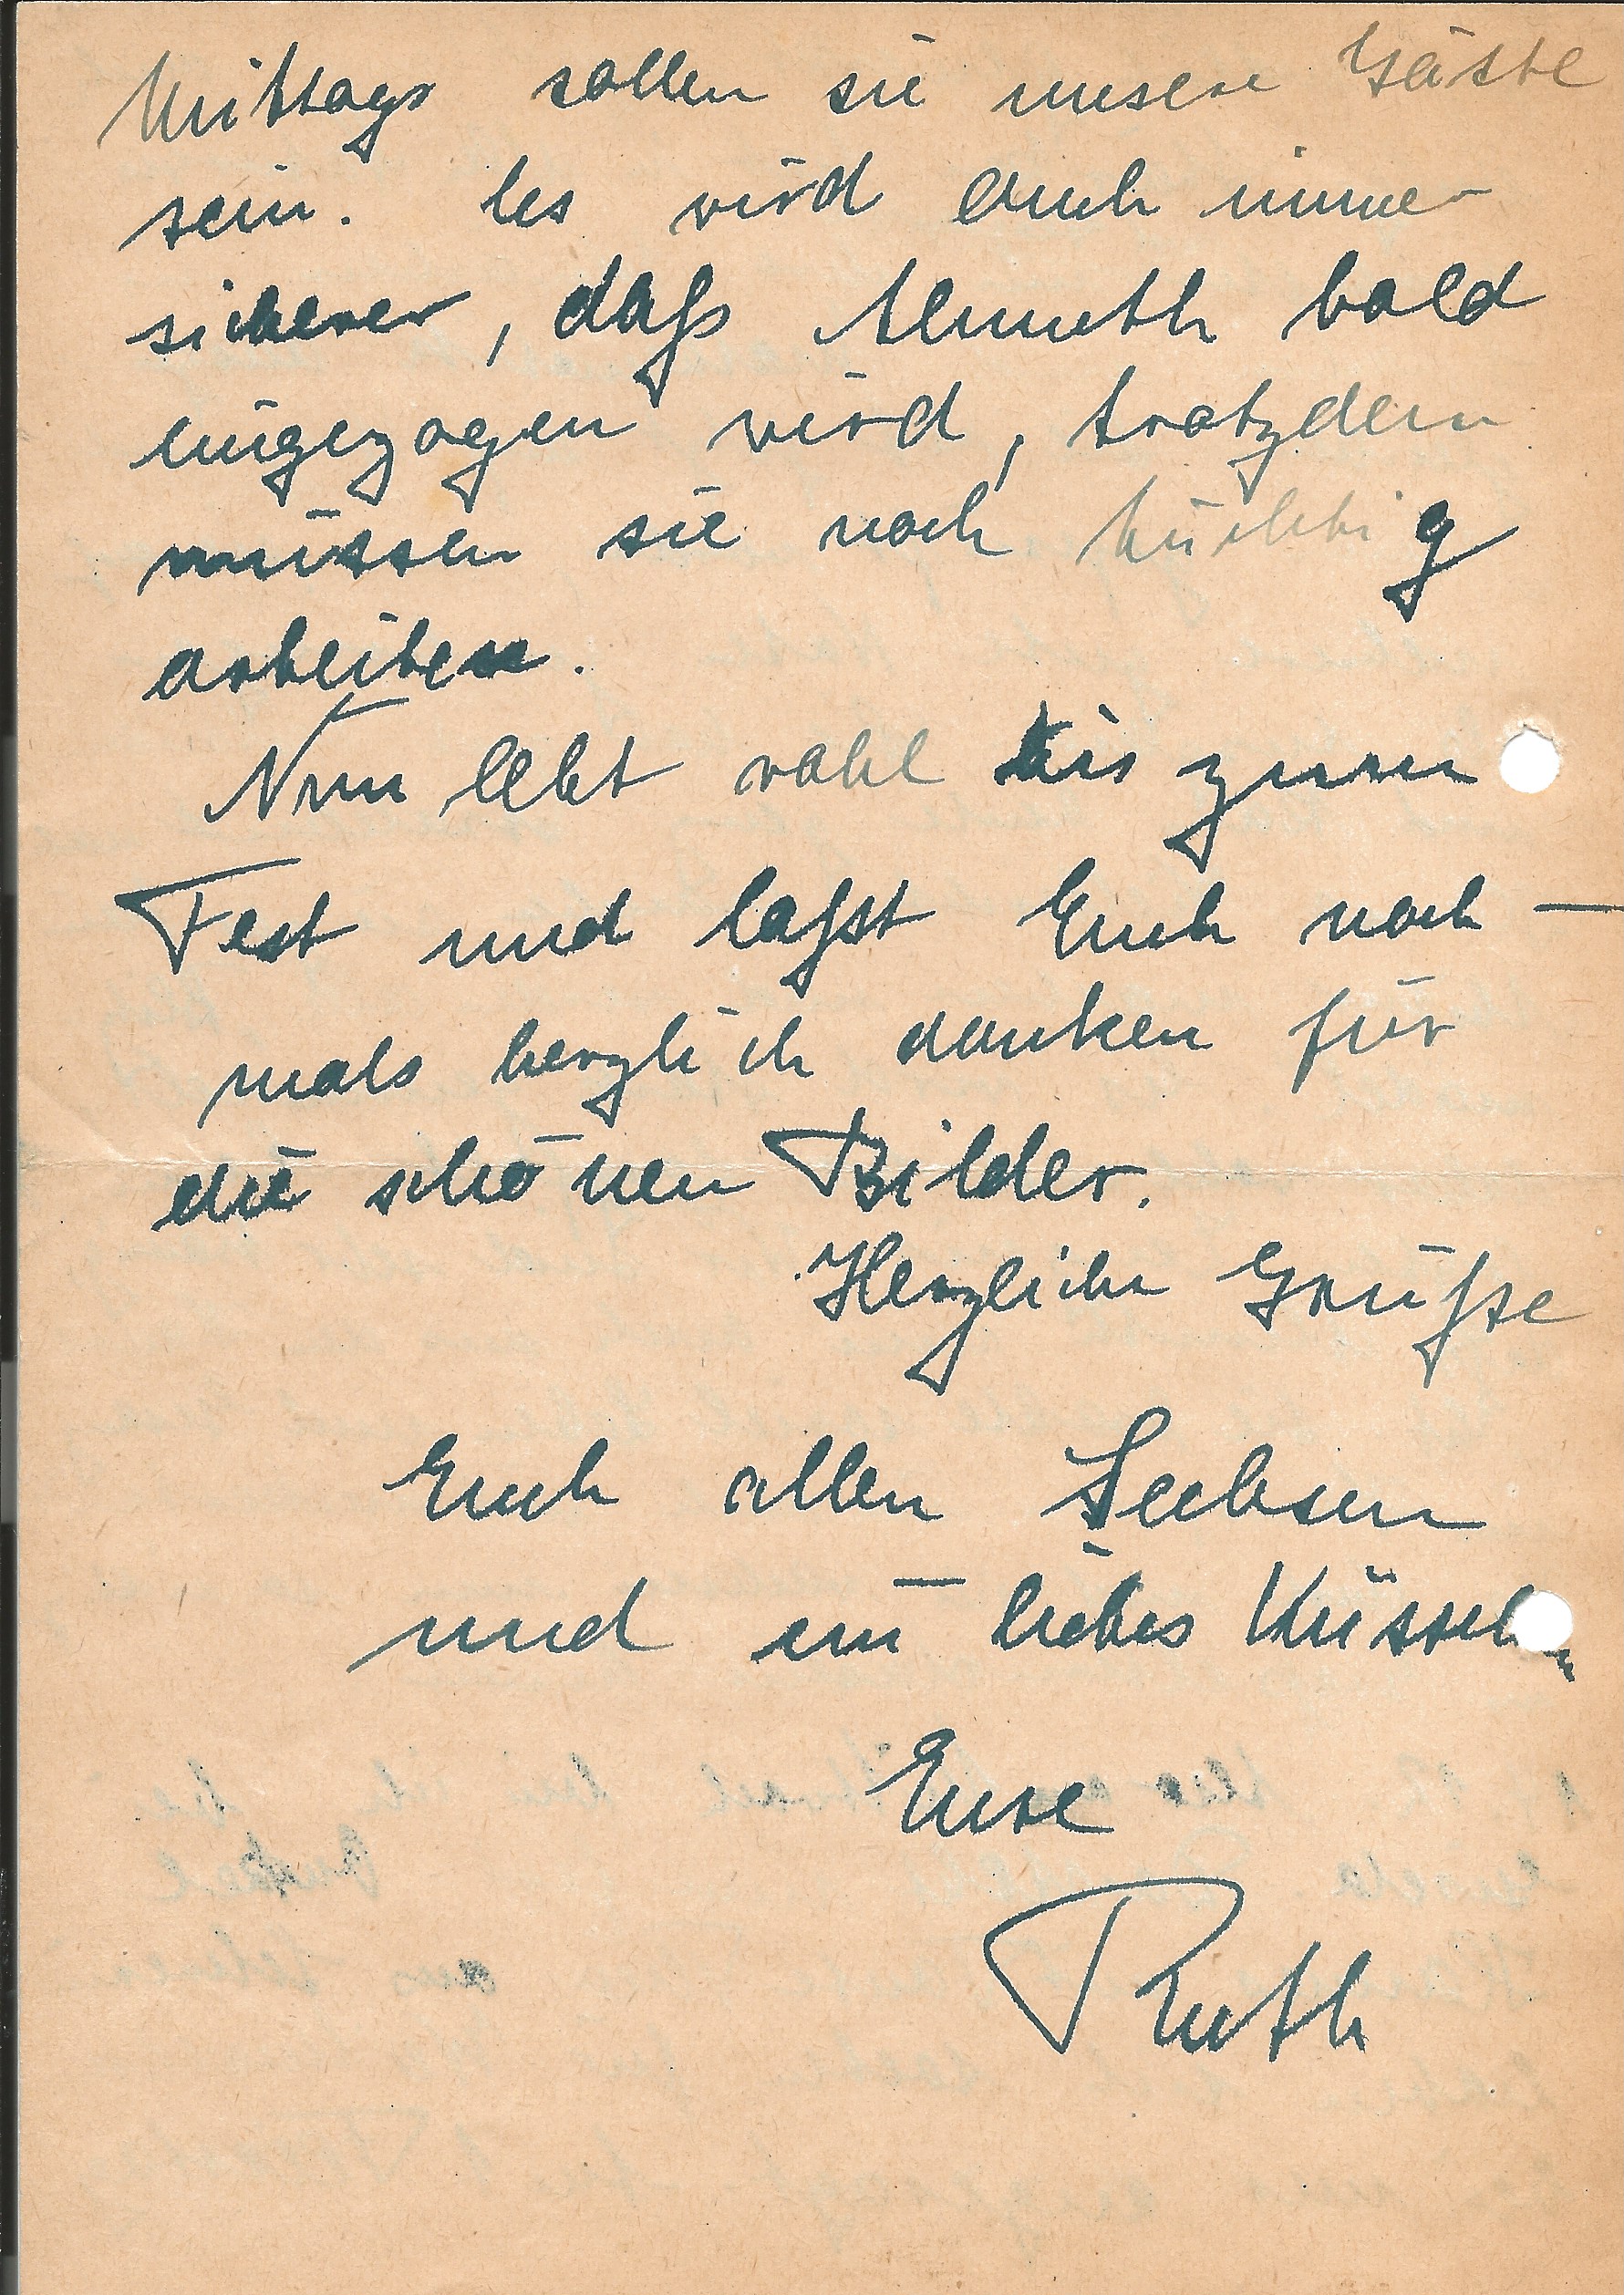 Mittags sollen sie unsere Gäste
sein. Es wird auch immer
sicherer, daß Almuth bald
eingezogen wird, trotzdem
müssen sie noch tüchtig
arbeiten.
Nun lebt wohl bis zum
Fest und laßt Euch noch-
mals herzlich danken für
die schönen Bilder.
Herzliche Grüße
Euch allen Sechsen
und ein liebes Küsschen
Eure
Ruth